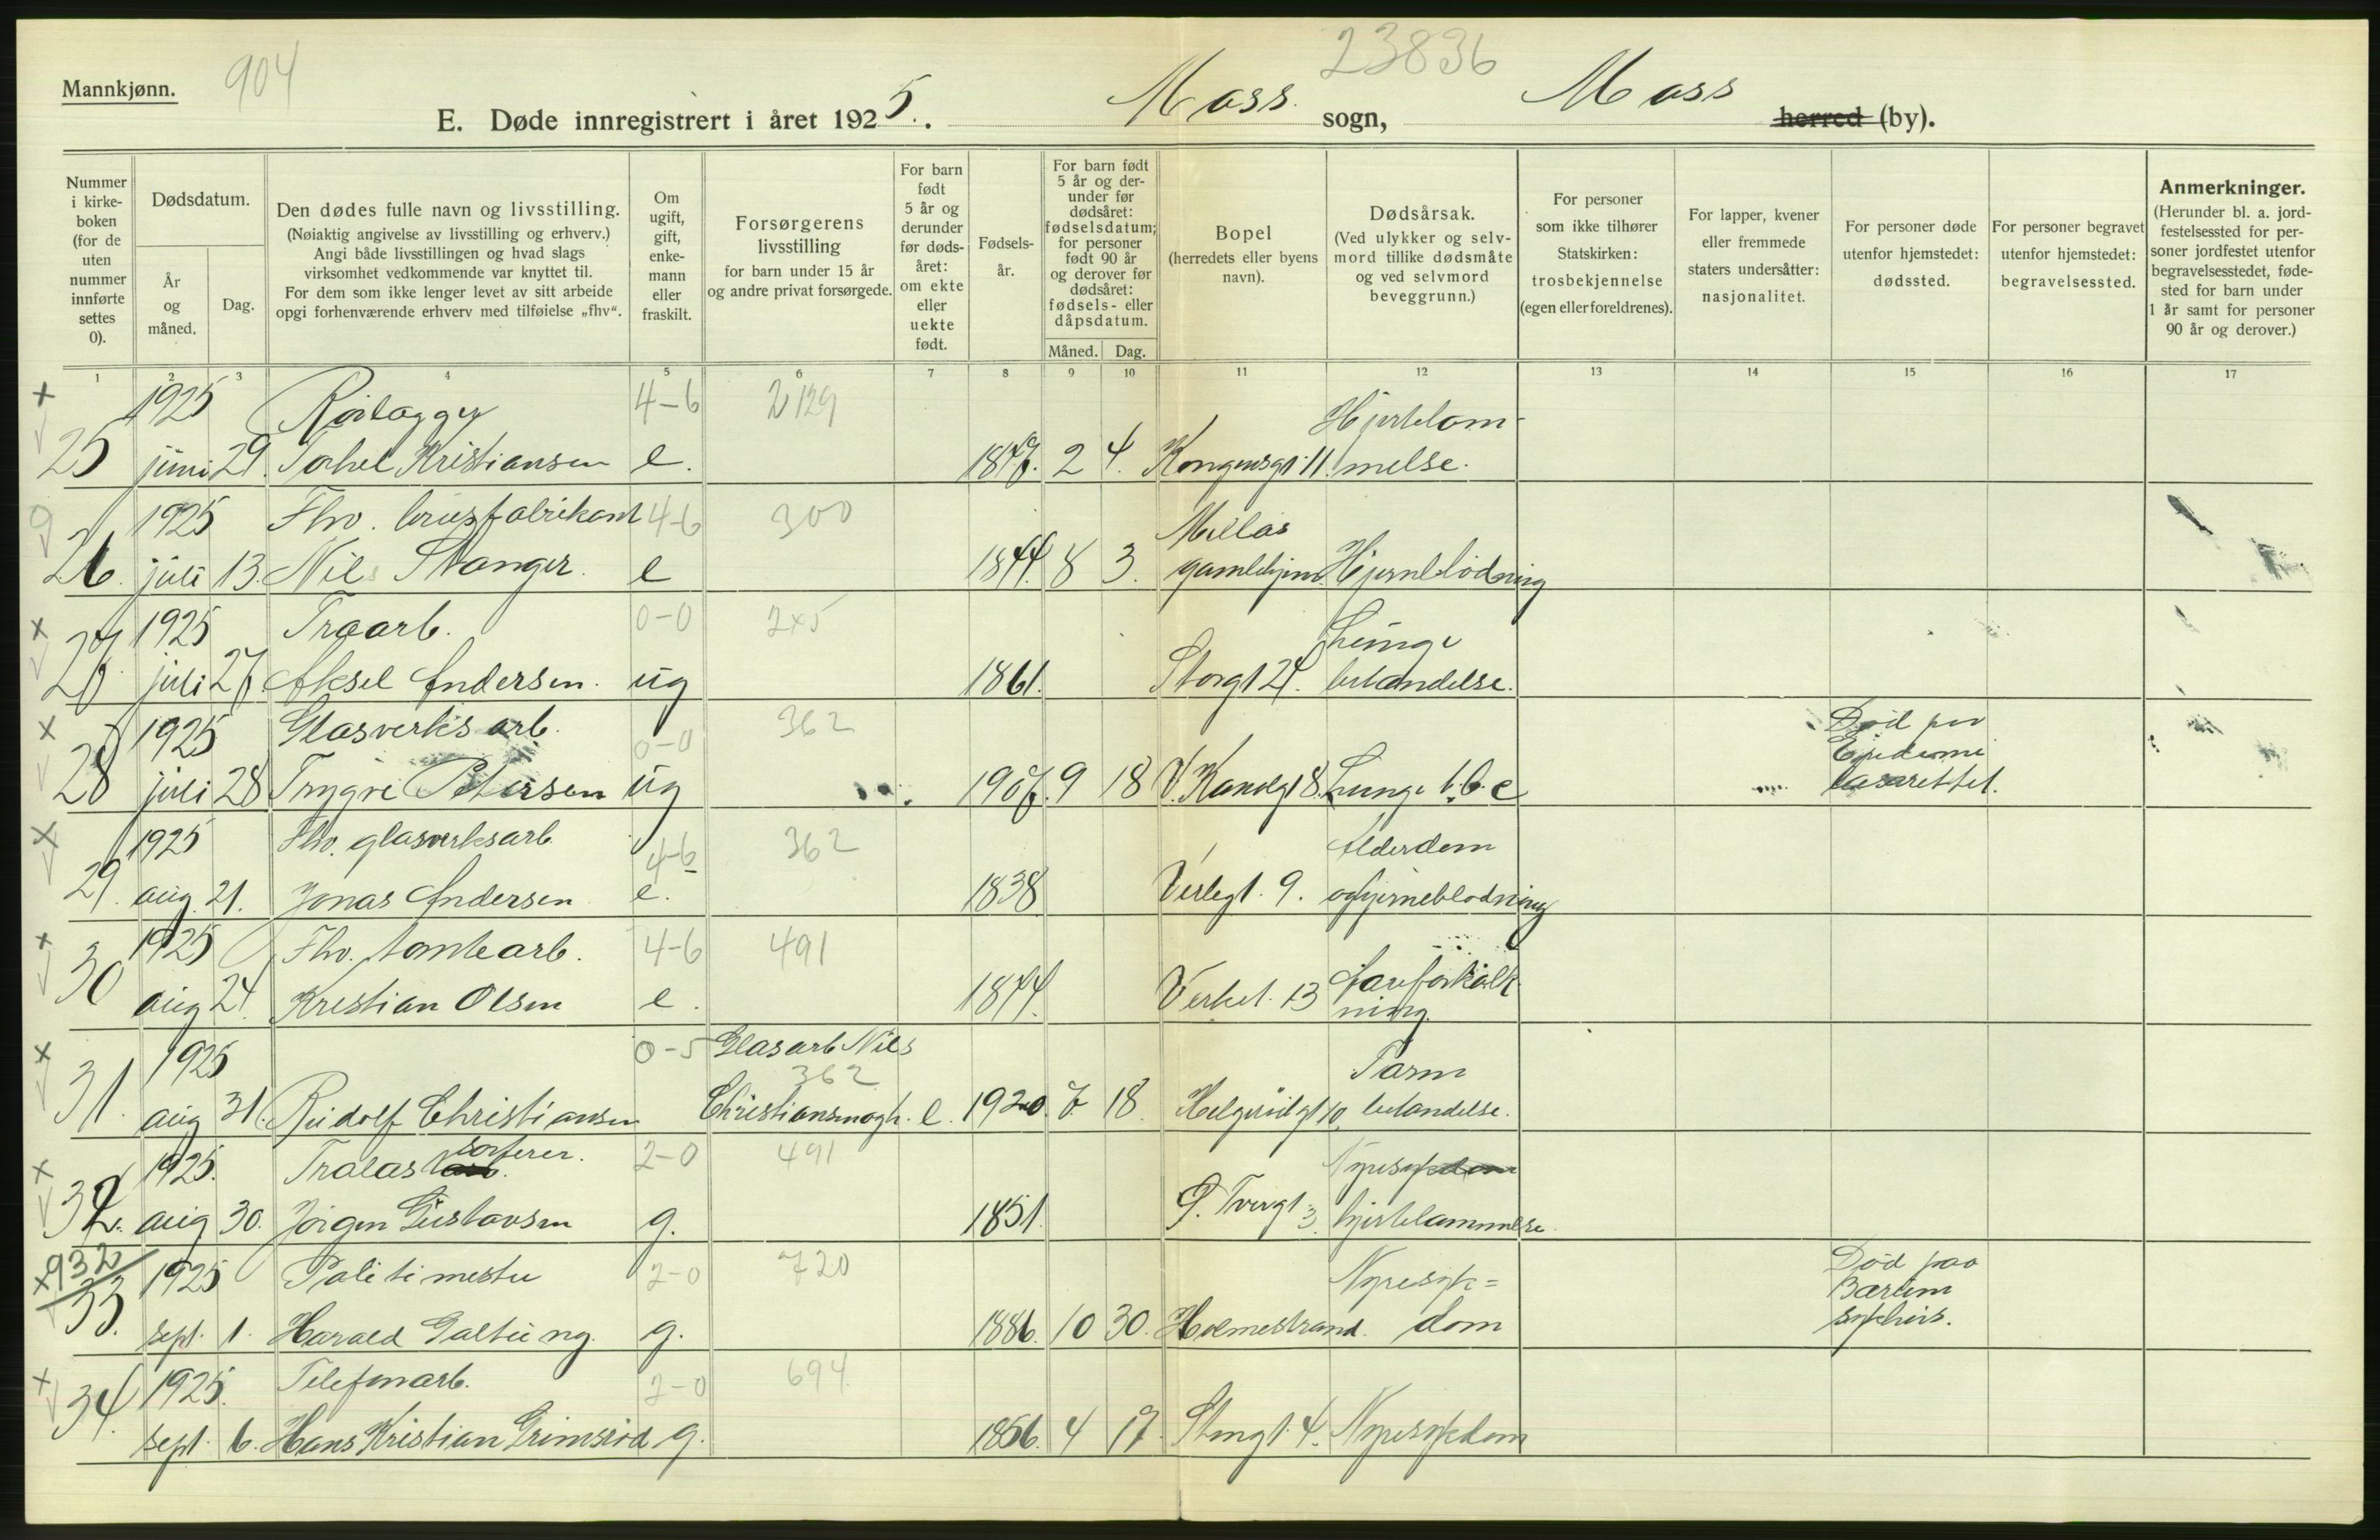 904
23836
Mannkjønn.
E. Døde innregistrert i året 1925. Moss sogn, Moss herred (by).
Nummer i kirkeboken (for de uten nummer innførte settes 0).
Dødsdatum.
År og måned.
Dag.
Den dødes fulle navn og livsstilling.
(Nøiaktig angivelse av livsstilling og erhverv.)
Angi både livsstillingen og hvad slags
virksomhet vedkommende var knyttet til.
For dem som ikke lenger levet av sitt arbeide
opgi forhenværende erhverv med tilføielse „fhv“.
Om ugift, gift, enkemann eller fraskilt.
Forsørgerens livsstilling
for barn under 15 år
og andre privat forsørgede.
For barn født 5 år og derunder før dødsåret: om ekte eller uekte født.
Fødselsår.
For barn født 5 år og derunder før dødsåret: fødselsdatum; for personer født 90 år og derover før dødsåret: fødsels- eller dåpsdatum.
Måned. Dag.
Bopel
(herredets eller byens navn).
Dødsårsak.
(Ved ulykker og selvmord tillike dødsmåte og ved selvmord beveggrunn.)
For personer som ikke tilhører Statskirken: trosbekjennelse (egen eller foreldrenes).
For lapper, kvener eller fremmede staters undersåtter: nasjonalitet.
For personer døde utenfor hjemstedet: dødssted.
For personer begravet utenfor hjemstedet: begravelsessted.
Anmerkninger.
(Herunder bl. a. jordfestelsessted for personer jordfestet utenfor begravelsesstedet, fødested for barn under 1 år samt for personer 90 år og derover.)
1 2 3 4 5 6 7 8 9 10 11 12 13 14 15 16 17
1925 Rørlægger 4-6 2129 Hjertelam-
25 juni 29. Kristiansen e. 2 4. Kongensgt. 11. melse.
1925 Fhv. brusfabrikant 4-6 300 Mellös
26. juli 13. Nils Stanger. e 1844. 8 3. gamlehjem Hjerneblødning
1925 Træarb. 0-0 245 Lunge
27 juli 27 Aksel Andersen. ug 1861. Storgt 24. betændelse.
1925 Glasverks arb. 0-0 362 Død paa
Epidemi
28 juli 28 Trygve Petersen ug 1907. 9 18 V. Kanalgt 8. Lunge t.b.c lasarettet.
1925 Fhv. glasverksarb 4-6 362 Alderdom
29. aug. 21. Jonas Andersen e. 1838 Verlegt. 9. og hjerneblødning
1925 Fhv. tomtearb. 4-6 491 Aareforkalk-
30 aug 24. Kristian Olsen e. 1844. Verket. 13 ning.
1925 0-5 Glasarb Nils 362 Tarm
31. aug 31. Rudolf Christiansen Christiansen og h. e. 1920. 7 18. Helgerødgt 10. betændelse.
1925. Trælast sorterer. 2-0 491 Nyresykdom
32. aug 30. Jørgen Gustavsen g. 1851. Tvergt. 3. hjertelammelse.
932
1925 Politimester 2-0 720 Nyresyk= Død paa
Bærum
33. sept. 1. Harald Galtung. g. 1886. 10 30. Holmestrand. dom sykehus.
1925. Telefonarb. 2-0 694
34. sept. 6. Hans Kristian Grimsrød g. 1856. 4 17 Storgt. 4. Nyresykdom